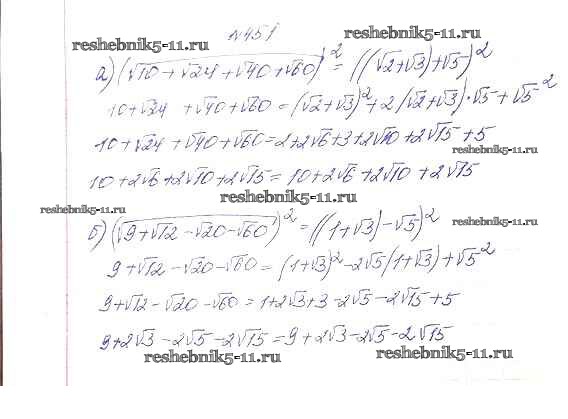 №451
reshebnik5-11.ru
reshebnik5-11.ru
а) (√(√10 + √24 + √40 + √60))² = ((√2+√3)+√5)²
10+√24 + √40+√60 = (√2+√3)² + 2(√2+√3)·√5 + √5²
10+√24 + √40+√60 = 2+2√6+3+2√10 + 2√15 + 5
reshebnik5-11.ru
10 + 2√6 + 2√10 + 2√15 = 10+2√6 + 2√10 + 2√15
reshebnik5-11.ru
reshebnik5-11.ru
б) (√(9+√12 - √20 - √60))² = ((1+√3) - √5)²
reshebnik5-11.ru
9+√12 - √20 - √60 = (1+√3)² - 2√5(1+√3) + √5²
9+√12 - √20 - √60 = 1+2√3+3 - 2√5 - 2√15 + 5
9+2√3 - 2√5 - 2√15 = 9+2√3 - 2√5 - 2√15
reshebnik5-11.ru
reshebnik5-11.ru